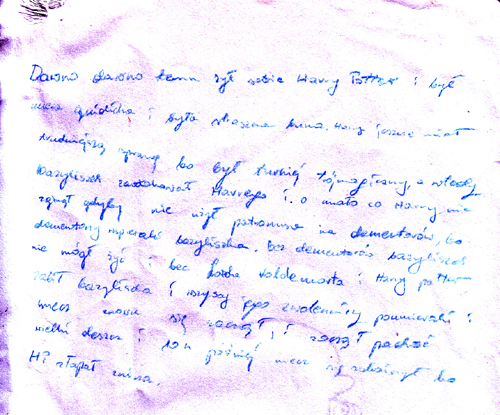 Dawno dawno temu żył sobie Harry Potter i był
mecz quidicha i była straszna burza. Harry jeszcze miał
trudniejszą sprawę bo był turniej trójmagiczny, a wtedy
bazyliszek zaatakował Harrego i o mało co Harry nie
zginął gdyby nie użył patronusa na dementorów, bo
dementorzy wspierali bazyliszka. Bez dementorów bazyliszek
nie mógł żyć i bez lorda Voldemorta i Harry Potter
zabił bazyliszka i wszyscy jego zwolennicy poumierali i
mecz znowu się zaczął, i zaczął padać
wielki deszcz i po później mecz się skończył bo
HP złapał znicza.